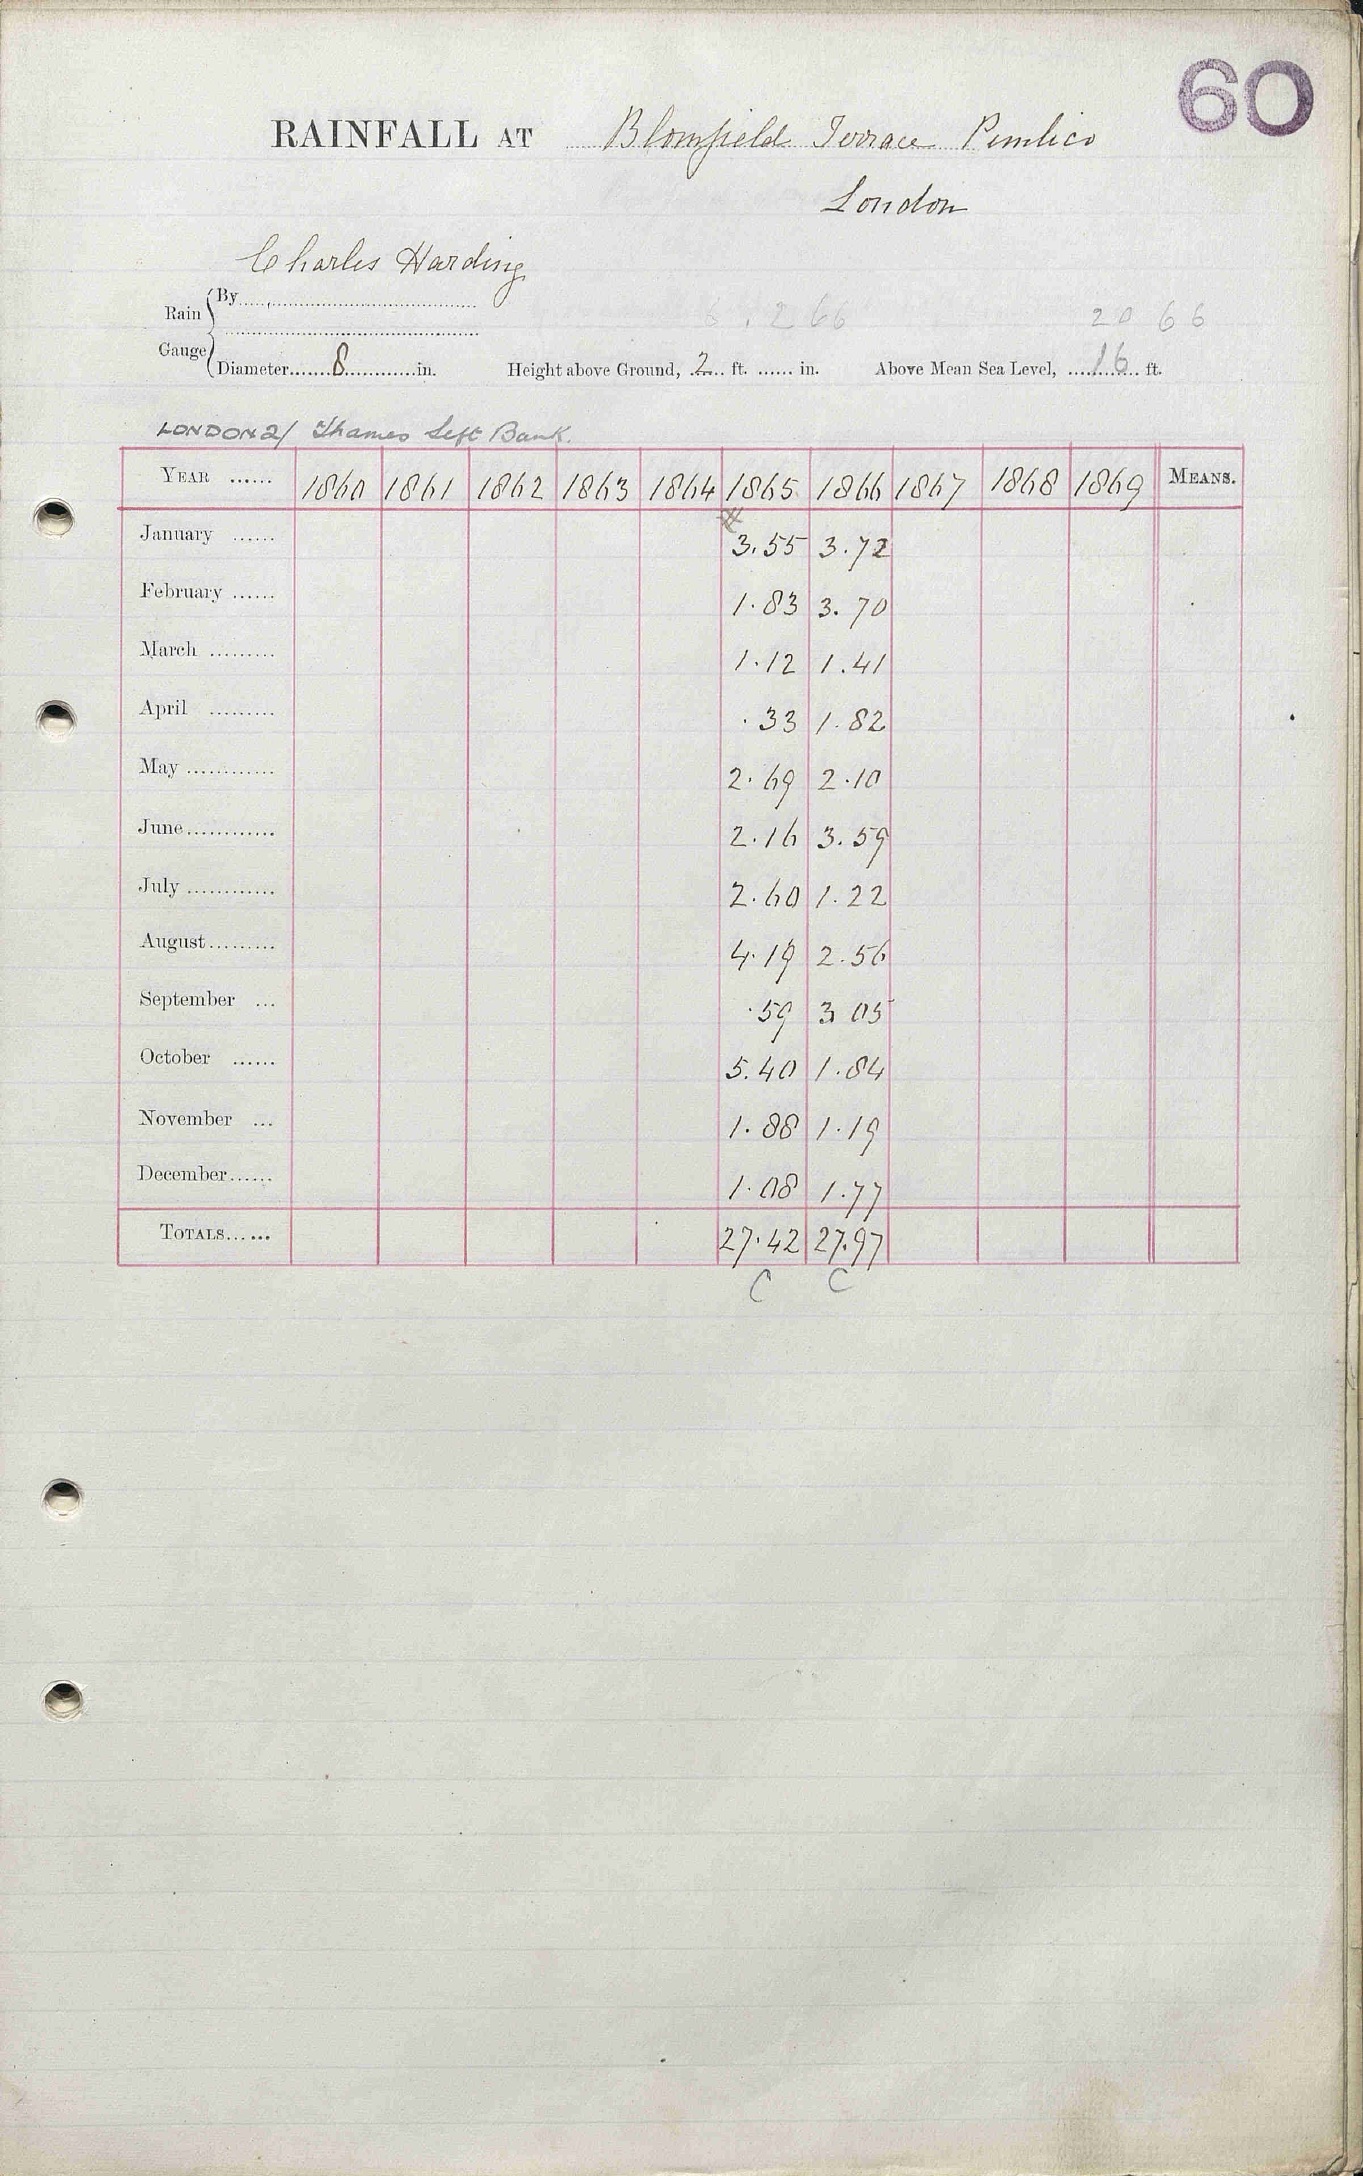 60
RAINFALL AT Blomfield Terrace Pimlico
London
Charles Harding
Rain Gauge { By..........
Diameter.......8............in. Height above Ground, ..2.. ft. ...... in. Above Mean Sea Level, ....16.... ft.
6.266 2066
LONDON 2/ Thames Left Bank.
YEAR ...... 1860 1861 1862 1863 1864 1865 1866 1867 1868 1869 MEANS.
January ...... 3.55 3.72
February ...... 1.83 3.70
March ......... 1.12 1.41
April ......... .33 1.82
May ............ 2.69 2.10
June............ 2.16 3.59
July ............ 2.60 1.22
August......... 4.19 2.56
September ... .59 3 05
October ...... 5.40 1.84
November ... 1.88 1.19
December...... 1.08 1.77
TOTALS...... 27.42 27.97
C C